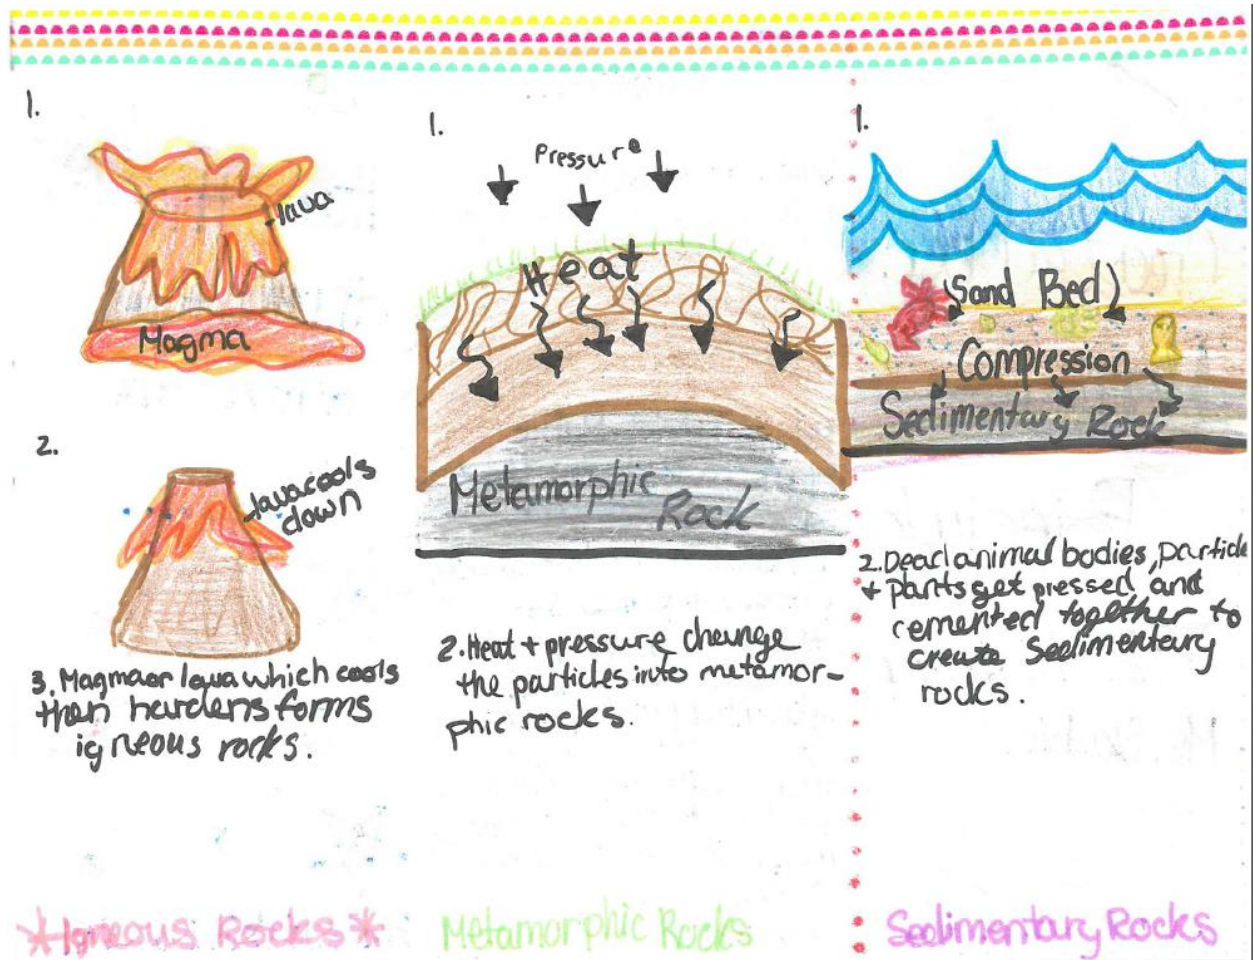 1.
lava
Magma
2.
lava cools
down
3. Magma or lava which cools
then hardens forms
igneous rocks.
*Igneous Rocks*
1.
Pressure
Heat
Metamorphic
Rock
2. Heat + pressure change
the particles into metamor-
phic rocks.
Metamorphic Rocks
1.
(Sand Bed)
Compression
Sedimentary Rock
2. Dead animal bodies, particle
+ parts get pressed and
cemented together to
create Sedimentary
rocks.
Sedimentary Rocks